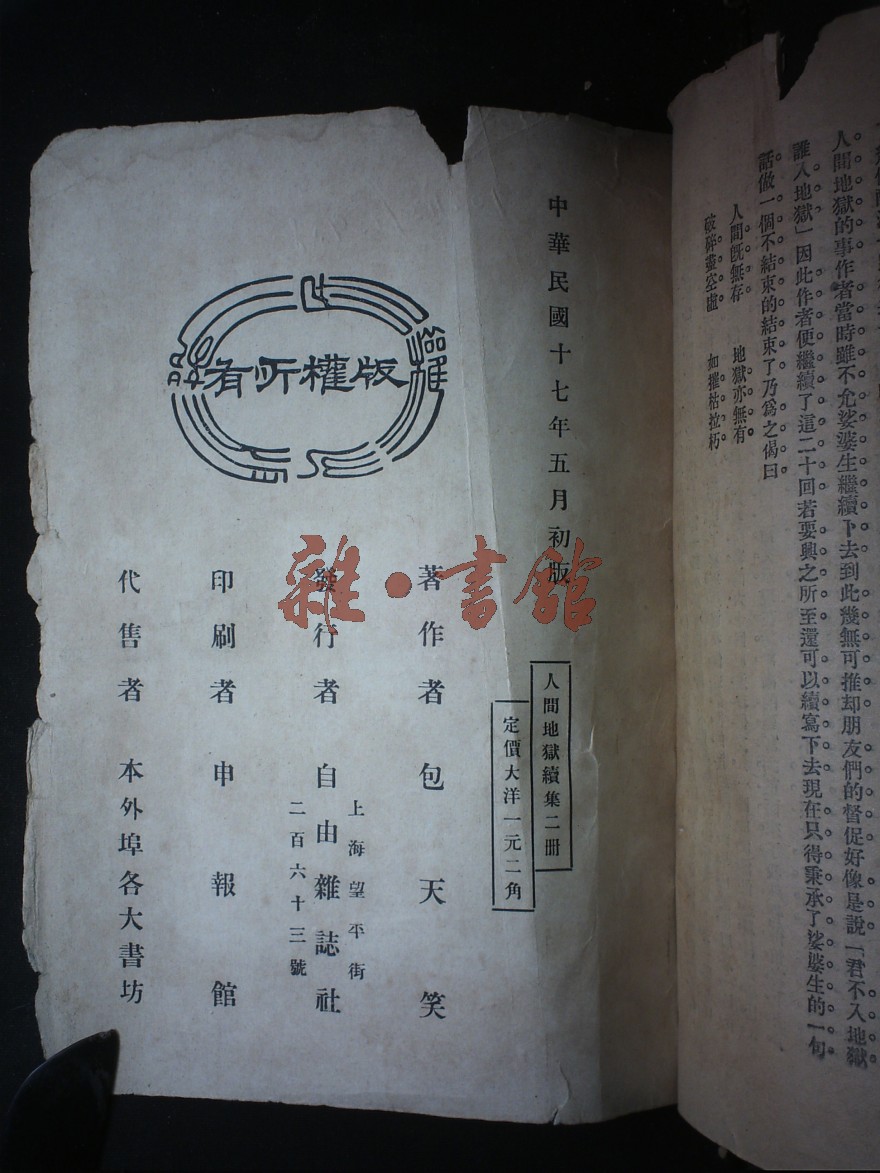 人間地獄的事作者當時雖不允娑婆生繼續下去到此幾無可推却朋友們的督促好像是說「君不入地獄
誰入地獄」因此作者便繼續了這二十回若要興之所至還可以續寫下去現在只得秉承了娑婆生的一句
話做一個不結束的結束了乃爲之偈曰
人間旣無存 地獄亦無有
破碎盡空虛 如摧枯拉朽
中華民國十七年五月初版
人間地獄續集二冊
定價大洋一元二角
版權所有
著作者 包天笑
發行者 自由雜誌社
上海望平街
二百六十三號
印刷者 申報館
代售者 本外埠各大書坊
雜·書館